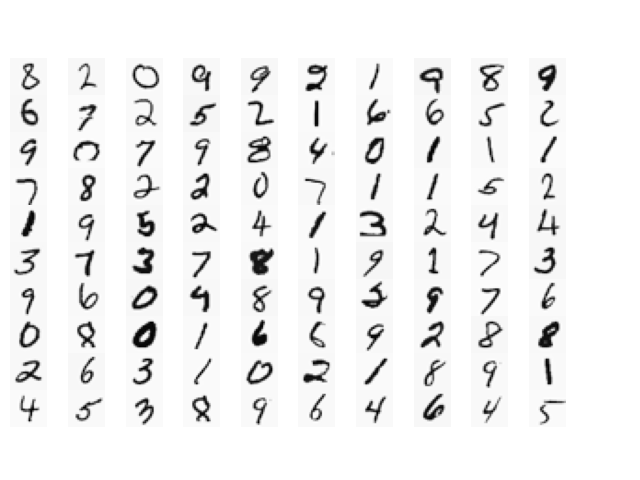 8 2 0 9 9 2 1 9 8 9
6 7 2 5 2 1 6 6 5 2
9 0 7 9 8 4 0 1 1 1
7 8 2 2 0 7 1 1 5 2
1 9 5 2 4 1 3 2 4 4
3 7 3 7 8 1 9 1 7 3
9 6 0 4 8 9 5 9 7 6
0 8 0 1 6 6 9 2 8 8
2 6 3 1 0 2 1 8 9 1
4 5 3 8 9 6 4 6 4 5